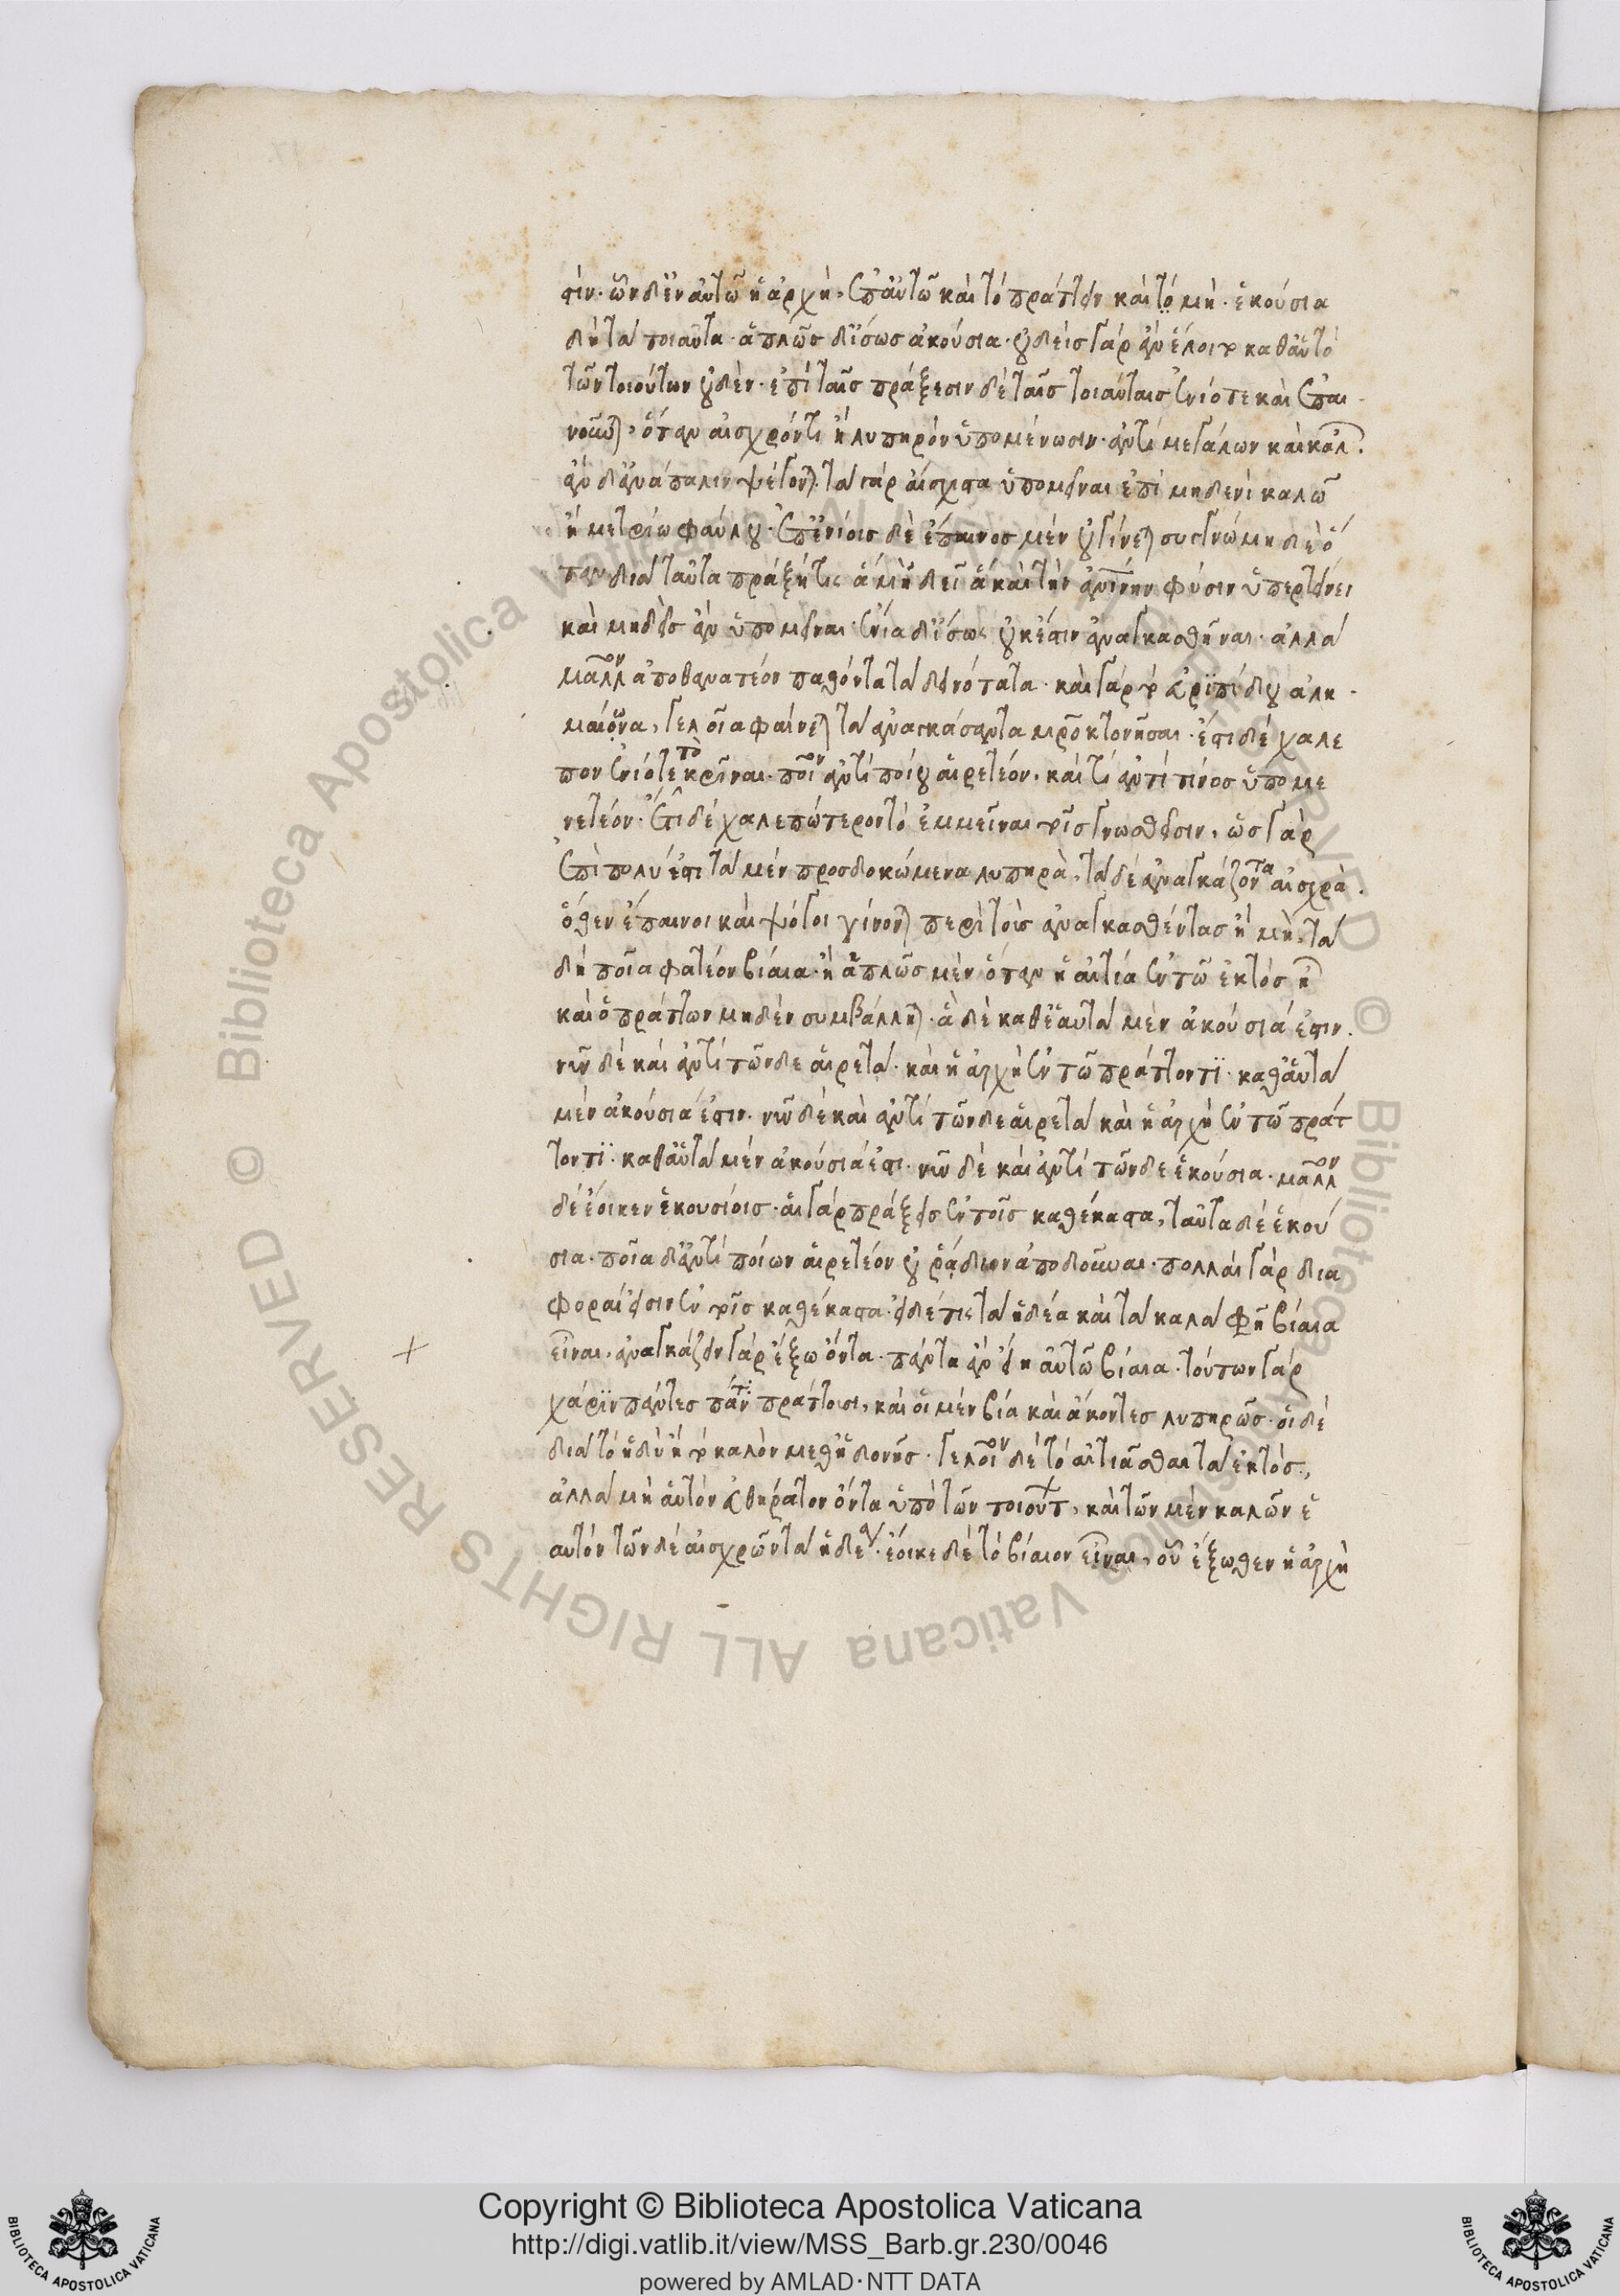 στίν. ὧν δ' ἐν αὐτῷ ἡ ἀρχὴ, ἐπ' αὐτῷ καὶ τὸ πράττειν καὶ τὸ μή. ἑκούσια
δὴ τὰ τοιαῦτα. ἁπλῶς δ' ἴσως ἀκούσια. οὐδεὶς γὰρ ἂν ἕλοιτο καθ' αὑτὸ
τῶν τοιούτων οὐδέν. ἐπὶ ταῖς πράξεσιν δὲ ταῖς τοιαύταις ἐνίοτε καὶ ἐπαι
νοῦνται, ὅταν αἰσχρόν τι ἢ λυπηρὸν ὑπομένωσιν. ἀντὶ μεγάλων καὶ καλῶν.
ἂν δ' ἀνάπαλιν ψέγονται. τὰ γὰρ αἴσχιστα ὑπομεῖναι ἐπὶ μηδενὶ καλῷ
ἢ μετρίῳ φαύλου. ἐπ' ἐνίοις δὲ ἔπαινος μὲν οὐ γίνεται συγγνώμη δὲ ὅ
ταν διὰ ταῦτα πράξῃ τις ἃ μὴ δεῖ ἃ καὶ τὴν ἀνθρωπίνην φύσιν ὑπερτείνει
καὶ μηδεὶς ἂν ὑπομεῖναι. ἔνια δ' ἴσως οὐκ ἔστιν ἀναγκασθῆναι. ἀλλὰ
μᾶλλον ἀποθανατέον παθόντα τὰ δεινότατα. καὶ γὰρ τὸν εὐριπίδου ἀλκ
μαίονα, γελοῖα φαίνεται τὰ ἀναγκάσαντα μητροκτονῆσαι. ἔστι δὲ χαλε
πὸν ἐνίοτε τὸ κρῖναι. ποῖον ἀντὶ ποίου αἱρετέον. καὶ τί ἀντὶ τίνος ὑπομε
νετέον. ἔτι δὲ χαλεπώτερον τὸ ἐμμεῖναι τοῖς γνωσθεῖσιν, ὡς γὰρ
ἐπὶ πολύ ἐστι τὰ μὲν προσδοκώμενα λυπηρὰ, τὰ δὲ ἀναγκάζοντα αἰσχρὰ.
ὅθεν ἔπαινοι καὶ ψόγοι γίνονται περὶ τοὺς ἀναγκασθέντας ἢ μή. τὰ
δὴ ποῖα φατέον βίαια. ἢ ἁπλῶς μὲν ὅταν ἡ αἰτία ἐν τῷ ἐκτός ᾖ
καὶ ὁ πράττων μηδὲν συμβάλληται. ἃ δὲ καθ' ἑαυτὰ μὲν ἀκούσιά ἐστιν.
νῦν δὲ καὶ ἀντὶ τῶνδε αἱρετὰ. καὶ ἡ ἀρχὴ ἐν τῷ πράττοντι. καθ' αὑτὰ
μὲν ἀκούσιά ἐστιν. νῦν δὲ καὶ ἀντὶ τῶνδε αἱρετὰ καὶ ἡ ἀρχὴ ἐν τῷ πράτ
τοντι. καθ' αὑτὰ μὲν ἀκούσιά ἐστι. νῦν δὲ καὶ ἀντὶ τῶνδε ἑκούσια. μᾶλλον
δὲ ἔοικεν ἑκουσίοις. αἱ γὰρ πράξεις ἐν τοῖς καθέκαστα, ταῦτα δὲ ἑκού
σια. ποῖα δ' ἀντὶ ποίων αἱρετέον οὐ ῥᾴδιον ἀποδοῦναι. πολλαὶ γὰρ δια
φοραί εἰσιν ἐν τοῖς καθέκαστα. εἰ δέ τις τὰ ἡδέα καὶ τὰ καλὰ φῇ βίαια
εἶναι. ἀναγκάζειν γὰρ ἔξω ὄντα. πάντα ἂν εἴη αὐτῷ βίαια. τούτων γὰρ
χάριν πάντες πάντα πράττουσι, καὶ οἱ μὲν βίᾳ καὶ ἄκοντες λυπηρῶς. οἱ δὲ
διὰ τὸ ἡδὺ ἢ τὸ καλὸν μεθ' ἡδονῆς. γελοῖον δὲ τὸ αἰτιᾶσθαι τὰ ἐκτός,
ἀλλὰ μὴ αὑτὸν εὐθήρατον ὄντα ὑπὸ τῶν τοιούτων, καὶ τῶν μὲν καλῶν ἑ
αυτὸν τῶν δὲ αἰσχρῶν τὰ ἡδέα. ἔοικε δὲ τὸ βίαιον εἶναι, οὗ ἔξωθεν ἡ ἀρχὴ
Copyright © Biblioteca Apostolica Vaticana
http://digi.vatlib.it/view/MSS_Barb.gr.230/0046
powered by AMLAD·NTT DATA
BIBLIOTECA APOSTOLICA VATICANA
BIBLIOTECA APOSTOLICA VATICANA
© Biblioteca Apostolica Vaticana ALL RIGHTS RESERVED
© Biblioteca Apostolica Vaticana ALL RIGHTS RESERVED